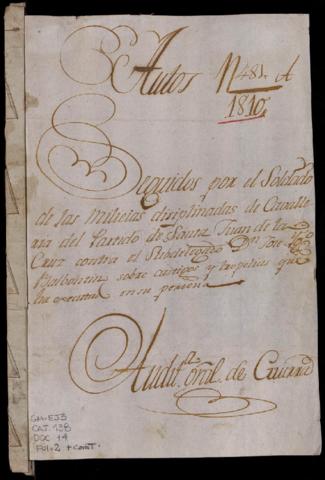 Autos N 481. A
1810,
Seguidos por el Soldado
de las Milicias disiplinadas de Cavalle
ria del Partido de Santa Juan de la
Cruz contra el Subdelegado Dn. Jose
Balbontin sobre castigos y tropelias que
ha executado en su persona
Auditª. Gral. de Guerra
GM-EJ3
CAT. 138
DOC 14
FOL-2 + CONT.